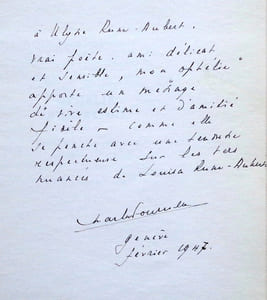 à Ulysse Rune-Aubert.
vrai poète. ami délicat
et sensible, mon "Ophélie"
apporte un message
de vive estime et d'amitié
fidèle — comme elle
se penche avec une tendresse
respectueuse sur les vers
nuancés de Louisa Rune-Aubert
Genève
février 1947.